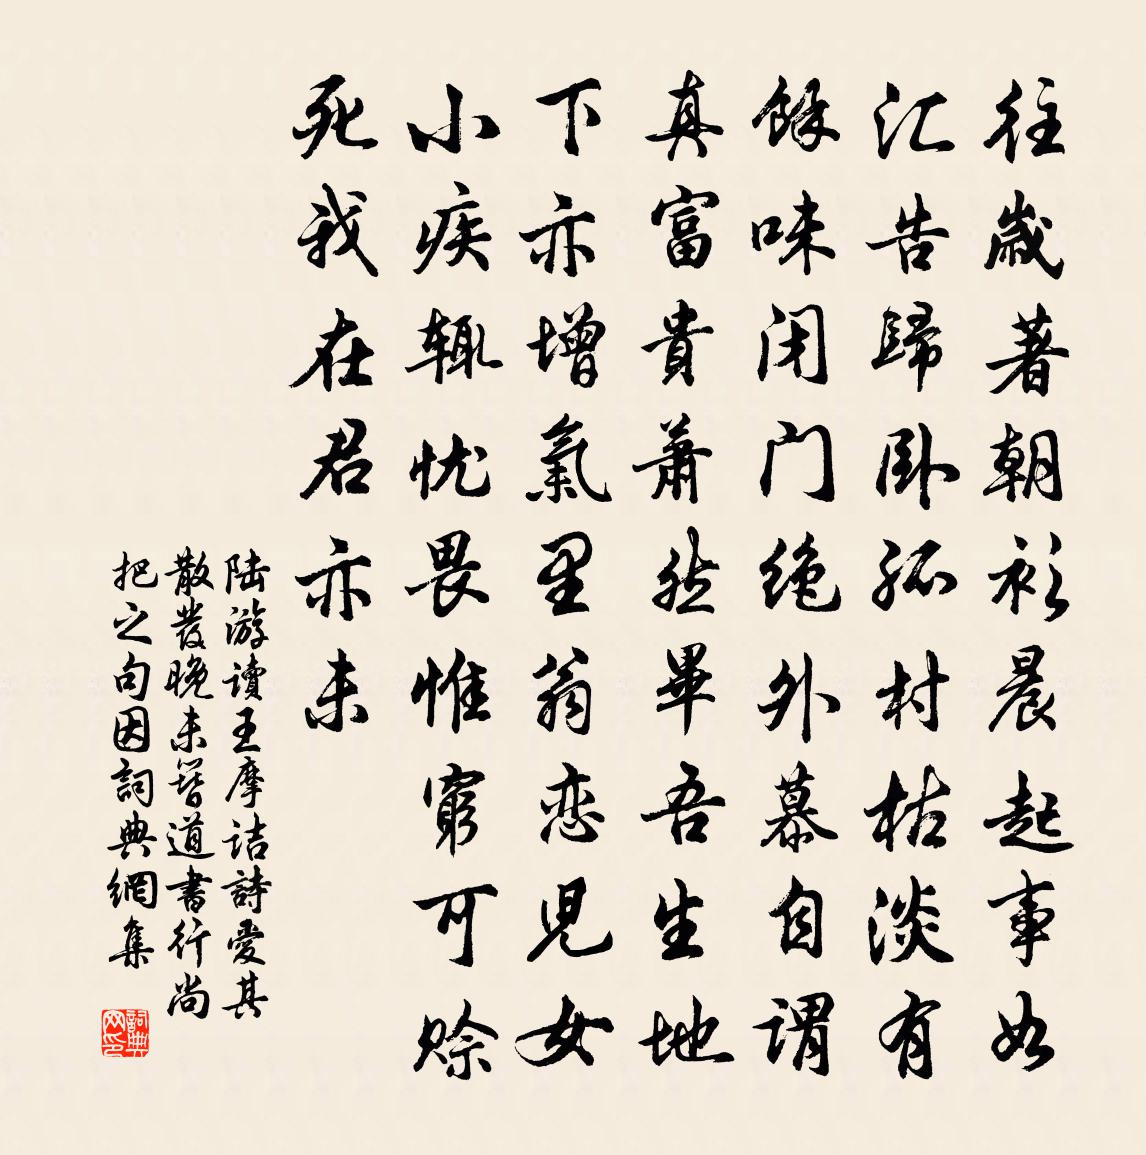 往歲著朝衫晨起事如
汇告歸卧孤村枯淡有
餘味闭门绝外慕自謂
真富貴蕭然畢吾生地
下亦增氣里翁恋児女
小疾輒忧畏惟窮可賒
死我在君亦未
陆游讀王摩詰詩愛其
散髮晚未簪道書行尚
把之句因詞典網集
詞典网印